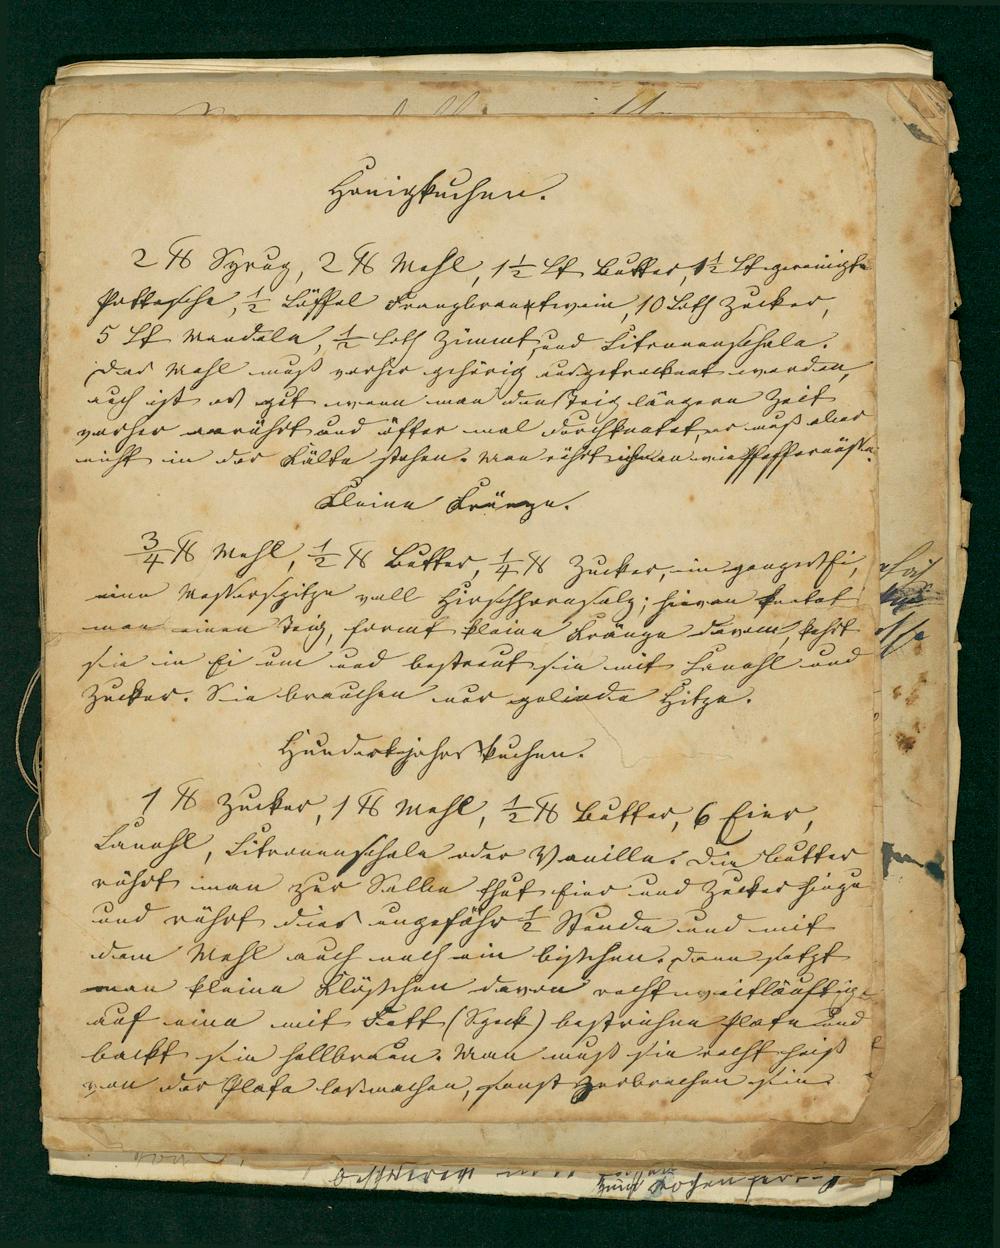 Honigkuchen.
2 ℔ Syrup, 2 ℔ Mehl, 1½ Lt Butter, 1½ Lt gereinigte
Pottasche, ½ Löffel Franzbranntwein, 10 Loth Zucker,
5 Lt Mandeln, ½ Loth Zimmt und Citronenschale.
Das Mehl muß vorher gehörig ausgetrocknet werden,
auch ist es gut wenn man den Teig längere Zeit
vorher anrührt und öfter mal durchknetet, er muß aber
nicht in der Kälte stehen. Man rührt ihn wie Pfeffernüsse.
Kleine Kränze.
¾ ℔ Mehl, ½ ℔ Butter, ¼ ℔ Zucker, ein ganzes Ei,
eine Messerspitze voll Hirschhornsalz; hievon knetet
man einen Teig, formt kleine Kränze davon, kehrt
sie in Ei um und bestreut sie mit Canehl und
Zucker. Sie brauchen nur gelinde Hitze.
Hundertjahrskuchen.
1 ℔ Zucker, 1 ℔ Mehl, ½ ℔ Butter, 6 Eier,
Canehl, Citronenschale oder Vanille. Die Butter
rührt man zur Salbe thut Eier und Zucker hinzu
und rührt dies ungefähr ½ Stunde und mit
dem Mehl auch noch ein bischen. Dann setzt
man kleine Klößchen davon recht weitläuftig
auf eine mit Fett (Speck) bestrichne Plate und
backt sie hellbraun. Man muß sie recht heiß
von der Plate losmachen, sonst zerbrechen sie.